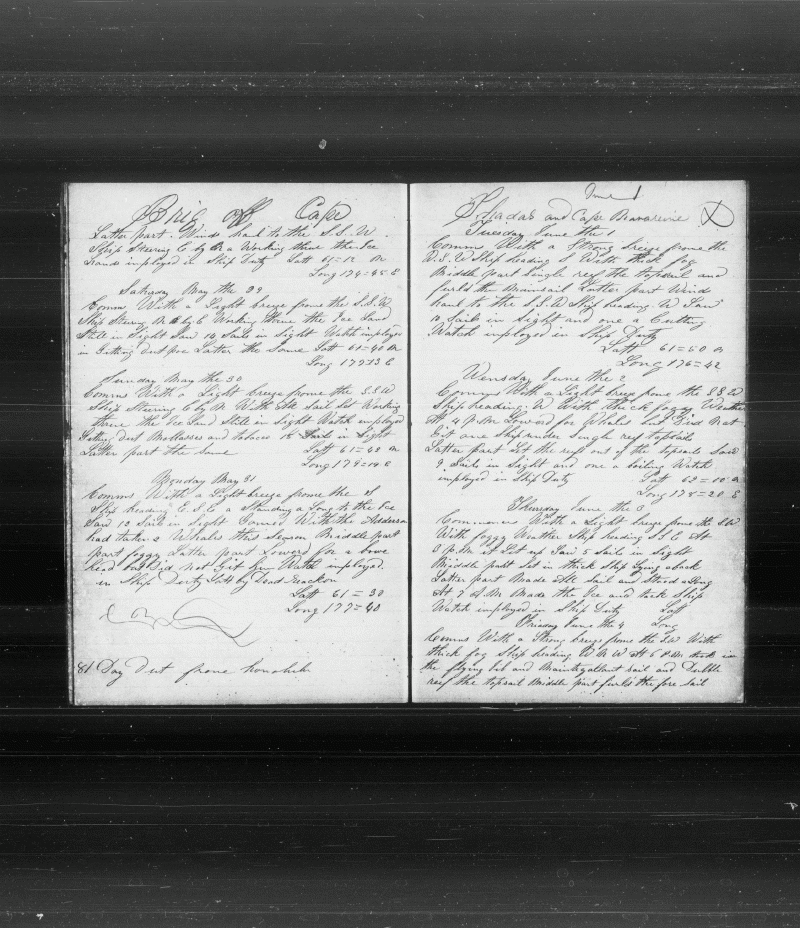 Brig off Cape
Latter part Winds haul to the S.S.W
Ship Steering E by N a Working threw the Ice
hands imployed in Ship Duty Latt 61=12 N
Long 174=45 E
Saturday May the 29
Comm With a Light breeze frome the S.S.W
Ship Steering N by E Working threw the Ice Land
Still in Sight Saw 14 Sails in Sight Watch imployed
in Gitting Dut Latter the Same Latt 61=40 N
Long 179=13 E
Sunday May the 30
Comms With a Light breeze frome the S.S.W
Ship Steering E by N With All Sail Set Working
threw the Ice Land Still in Sight Watch imployed
Getting Dut Mollasses and tobacco 12 Sails in Sight
Latter part the Same Latt 61=40 N
Long 179=14 E
Monday May 31
Comms With a Light breeze frome the S
Ship heading E.S.E a Standing a Long to the Ice
Saw 12 Sail in Sight Gamed With the Adderson
had taken 2 Whales this Season Middle part
part foggy Latter part Lowerd for a bowe
head but Did not Git Watch imployed
in Ship Duty Latt by Dead reackon
Latt 61=30
Long 177=40
81 Day Dut frome honolulu
June 1
Shadas and Cape Navarine
Tuesday June the 1
Comm With a Strong breeze frome the
W.S.W Ship heading S With thick fog
Middle part Single reef the topsail and
furld the Mainsail Latter part Wind
haul to the S.S.W Ship heading W Saw
10 Sails in Sight and one a Cutting
Watch imployed in Ship Duty
Latt 61=50 N
Long 176=42
Wensday June the 2
Comms With a Light breeze frome the S S W
Ship heading W With thick foggy Weather
At 4 P.M Lowerd for Whales but Did not
Git one Ship under Single reef topsails
Latter part Let the reef out of the topsails Saw
9 Sails in Sight and one a boiling Watch
imployed in Ship Duty Latt 62=00 N
Long 178=20 E
Thursday June the 3
Commences With a Light breeze frome the SW
With foggy Weather Ship heading S.S.E At
8 P.M it Let up Saw 5 Sails in Sight
Middle part Set in thick Ship Lying aback
Latter part Made All Sail and Stood along
At 7 A.M Made the Ice and tack Ship
Watch imployed in Ship Duty Latt
Friaday June the 4 Long
Comms With a Strong breeze frome the SW With
thick fog Ship heading W N W At 6 P.M in
the flying Gib and Maintogallant sail and Dubble
reef the topsail Middle part furld the fore Sail